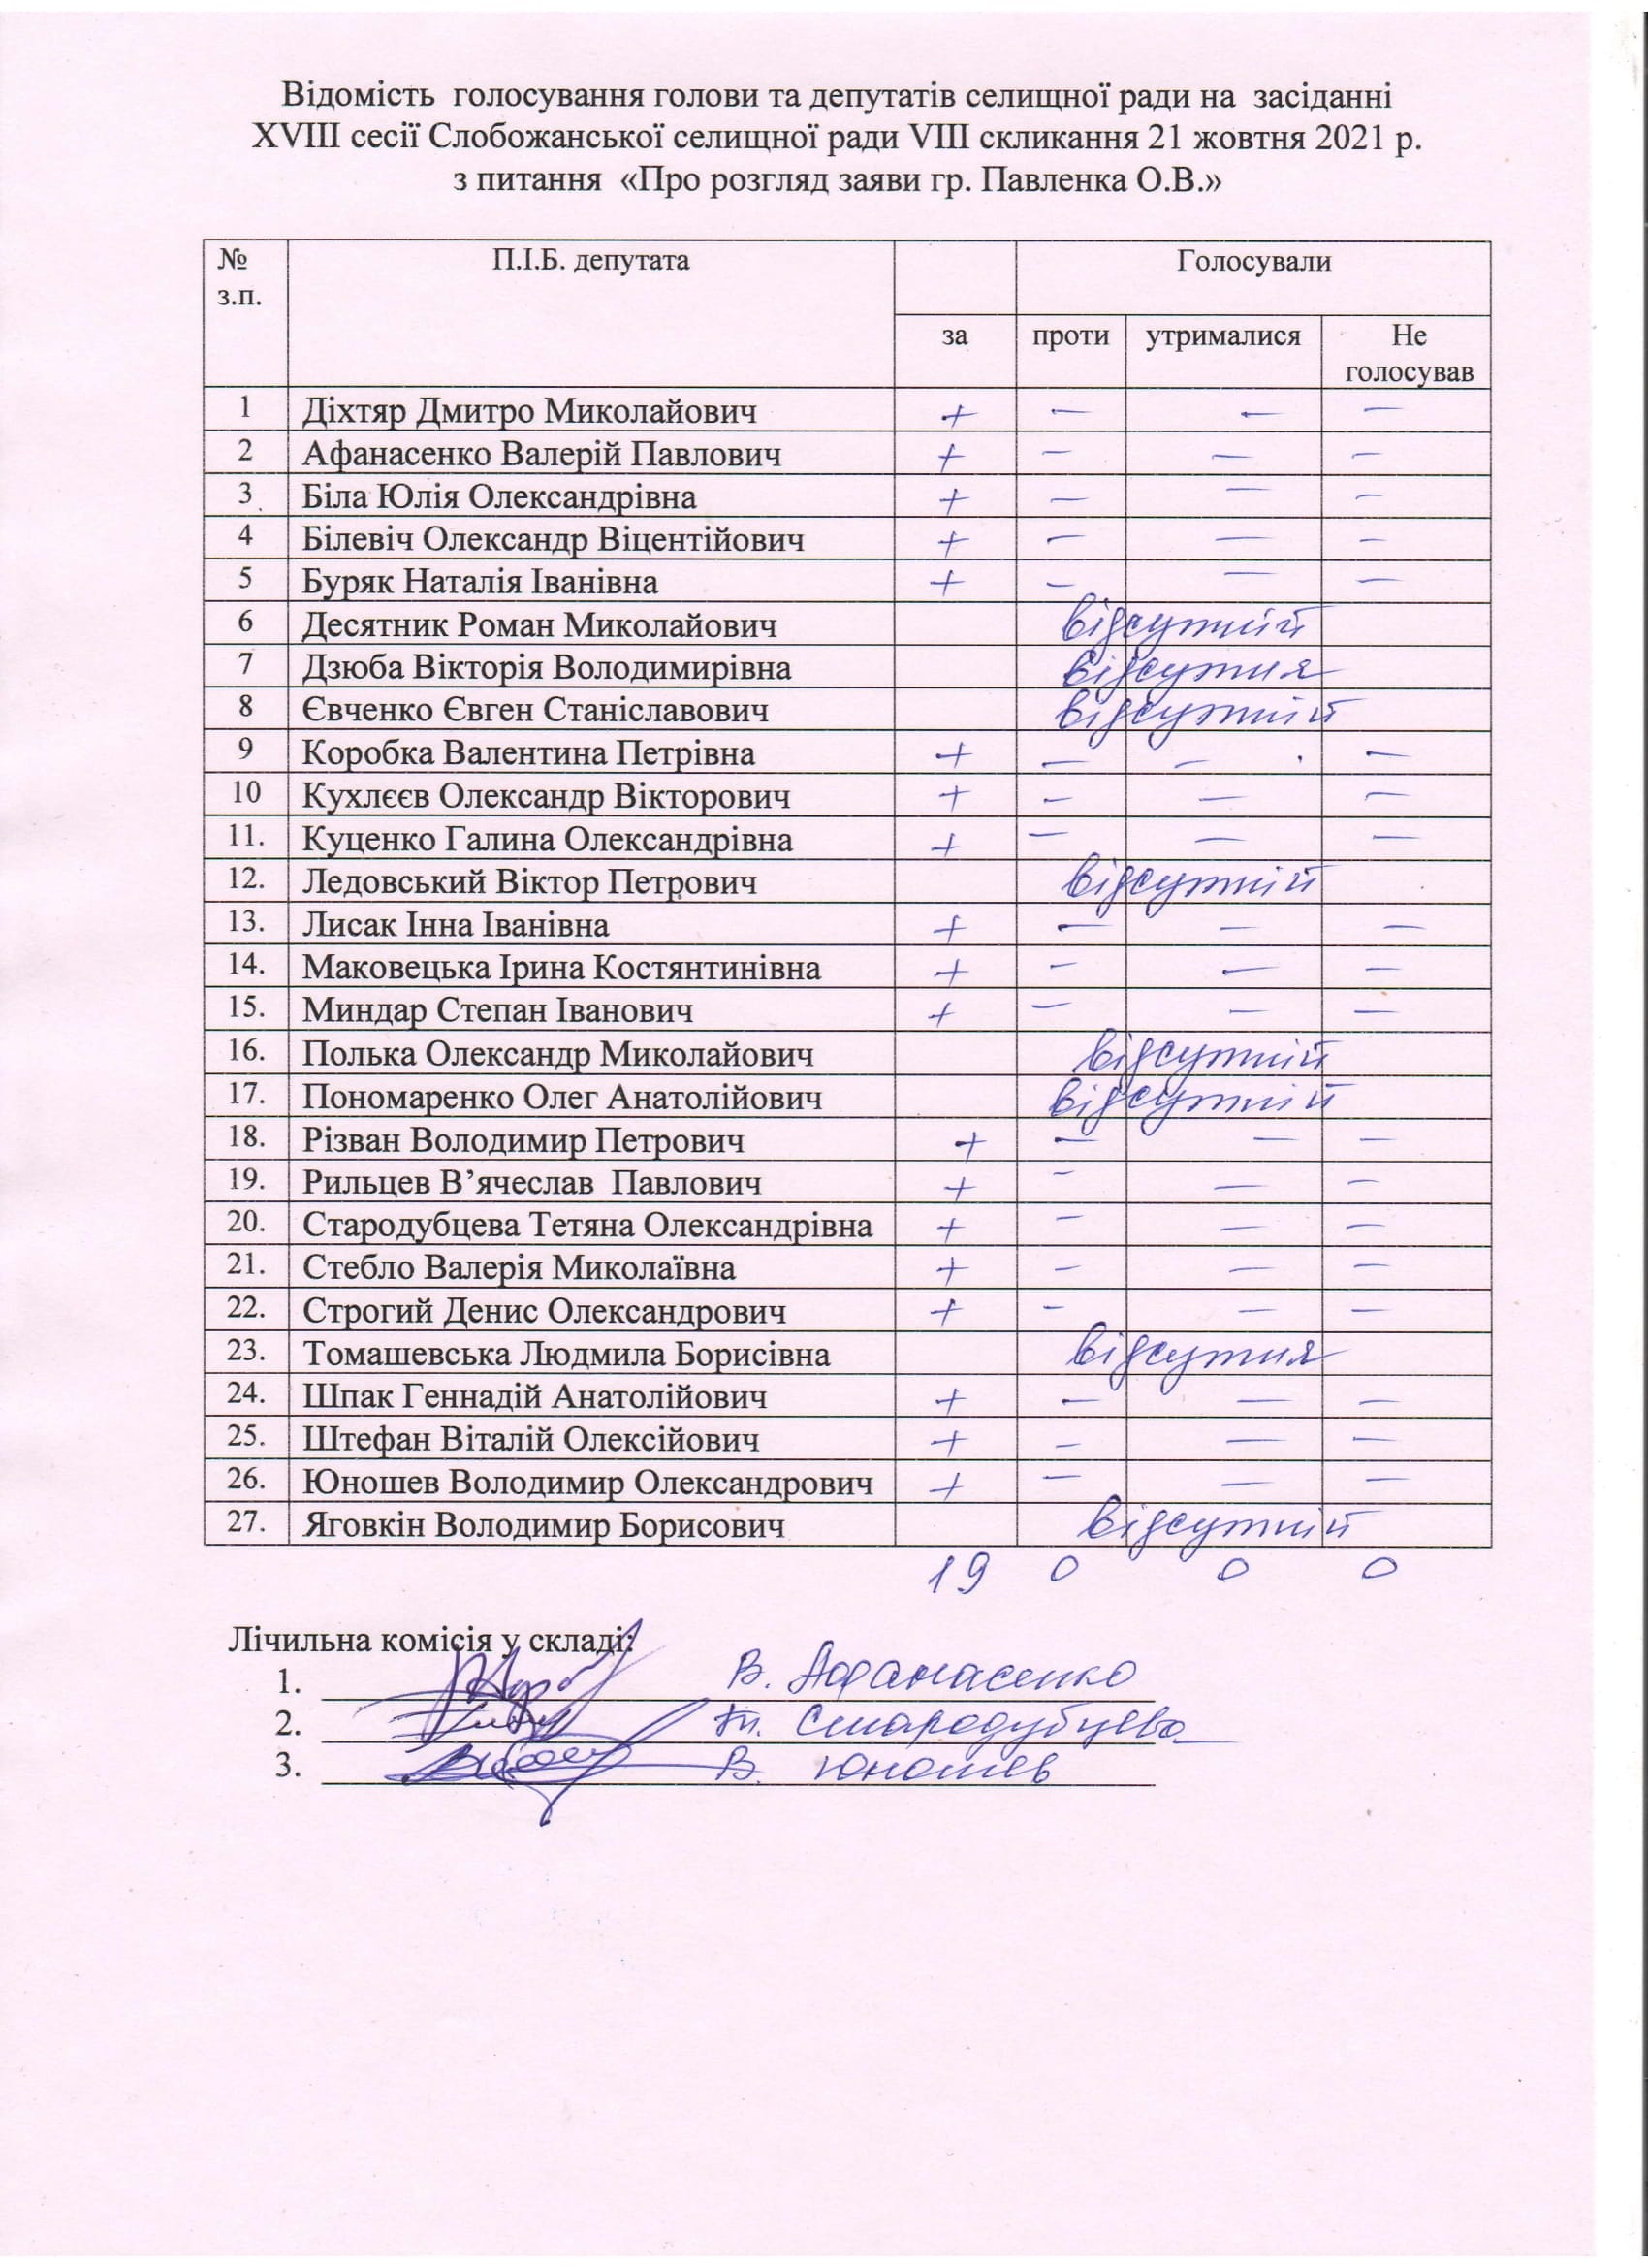 Відомість голосування голови та депутатів селищної ради на засіданні
XVIII сесії Слобожанської селищної ради VIII скликання 21 жовтня 2021 р.
з питання «Про розгляд заяви гр. Павленка О.В.»
№ П.І.Б. депутата Голосували
з.п.
за проти утрималися Не
голосував
1 Діхтяр Дмитро Миколайович + — — —
2 Афанасенко Валерій Павлович + — — —
3 Біла Юлія Олександрівна + — — —
4 Білевіч Олександр Віцентійович + — — —
5 Буряк Наталія Іванівна + — — —
6 Десятник Роман Миколайович відсутній
7 Дзюба Вікторія Володимирівна відсутня
8 Євченко Євген Станіславович відсутній
9 Коробка Валентина Петрівна + — — —
10 Кухлєєв Олександр Вікторович + — — —
11. Куценко Галина Олександрівна + — — —
12. Ледовський Віктор Петрович відсутній
13. Лисак Інна Іванівна + — — —
14. Маковецька Ірина Костянтинівна + — — —
15. Миндар Степан Іванович + — — —
16. Полька Олександр Миколайович відсутній
17. Пономаренко Олег Анатолійович відсутній
18. Різван Володимир Петрович + — — —
19. Рильцев В’ячеслав Павлович + — — —
20. Стародубцева Тетяна Олександрівна + — — —
21. Стебло Валерія Миколаївна + — — —
22. Строгий Денис Олександрович + — — —
23. Томашевська Людмила Борисівна відсутня
24. Шпак Геннадій Анатолійович + — — —
25. Штефан Віталій Олексійович + — — —
26. Юношев Володимир Олександрович + — — —
27. Яговкін Володимир Борисович відсутній
19 0 0 0
Лічильна комісія у складі:
1. В. Афанасенко
2. Т. Стародубцева
3. В. Юношев